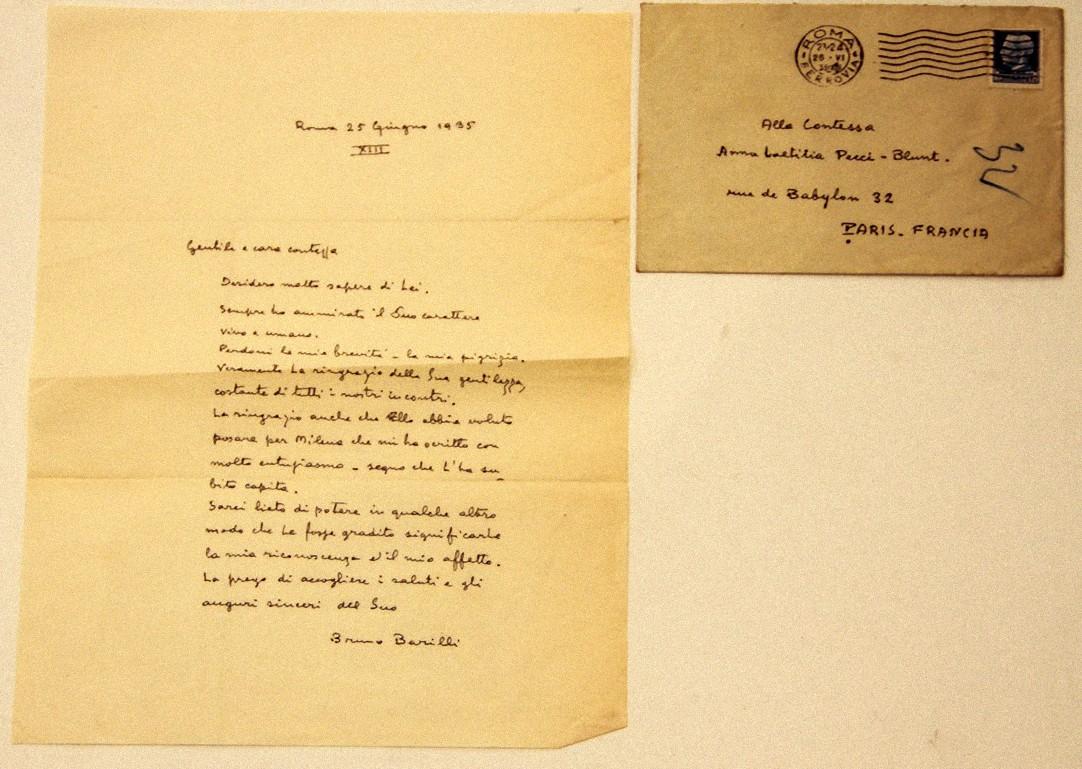 Roma 25 Giugno 1935
XIII
Gentile e cara contessa
Desidero molto sapere di Lei.
Sempre ho ammirato il Suo carattere
vivo e umano.
Perdoni la mia brevità - la mia pigrizia.
Veramente La ringrazio della Sua gentilezza,
costante di tutti i nostri incontri.
La ringrazio anche che Ella abbia voluto
posare per Milena che mi ha scritto con
molto entusiasmo - segno che L'ha su
bito capita.
Sarei lieto di potere in qualche altro
modo che Le fosse gradito significarle
la mia riconoscenza e il mio affetto.
La prego di accogliere i saluti e gli
auguri sinceri del Suo
Bruno Barilli
ROMA
26 · VI
FERROVIA
Alla Contessa
Anna Laetitia Pecci - Blunt.
rue de Babylon 32
PARIS - FRANCIA
32